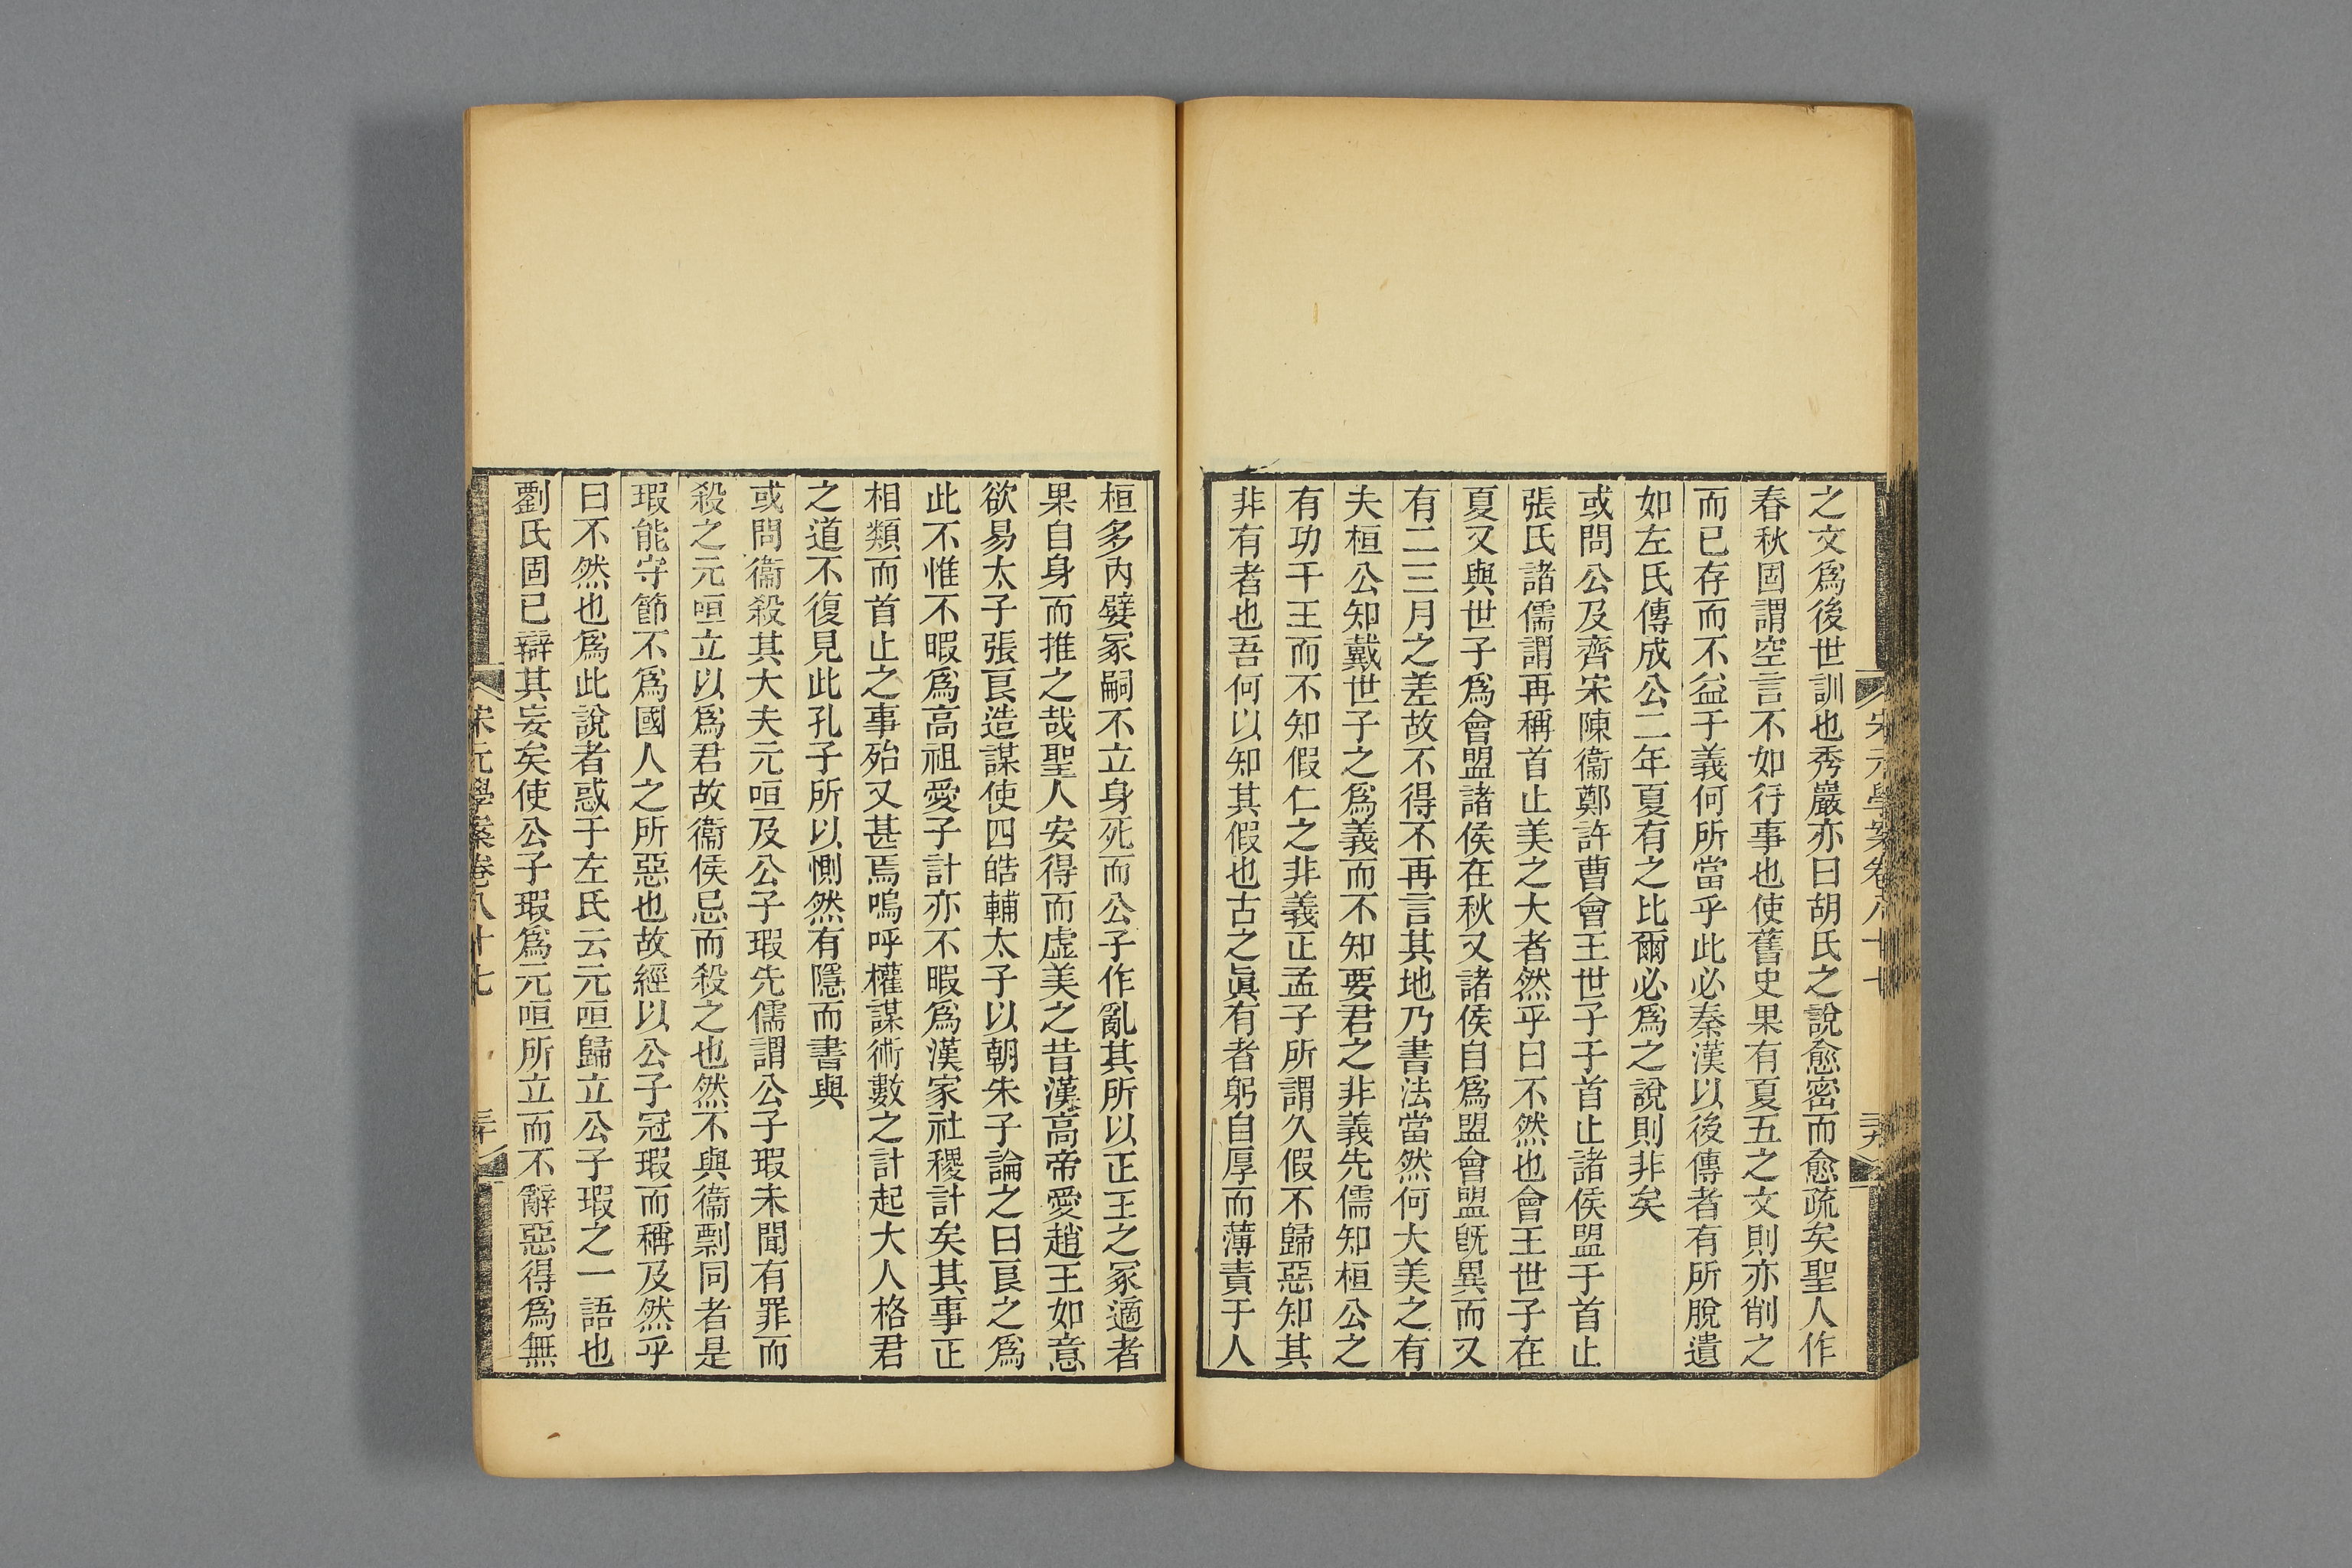 宋元學案卷八十七
之文爲後世訓也秀巖亦曰胡氏之說愈密而愈疏矣聖人作
春秋固謂空言不如行事也使舊史果有夏五之文則亦削之
而已存而不益于義何所當乎此必秦漢以後傳者有所脫遺
如左氏傳成公二年夏有之比爾必爲之說則非矣
或問公及齊宋陳衞鄭許曹會王世子于首止諸侯盟于首止
張氏諸儒謂再稱首止美之大者然乎曰不然也會王世子在
夏又與世子爲會盟諸侯在秋又諸侯自爲盟會盟旣異而又
有二三月之差故不得不再言其地乃書法當然何大美之有
夫桓公知戴世子之爲義而不知要君之非義先儒知桓公之
有功于王而不知假仁之非義正孟子所謂久假不歸惡知其
非有者也吾何以知其假也古之眞有者躬自厚而薄責于人
桓多內嬖冢嗣不立身死而公子作亂其所以正王之冢適者
果自身而推之哉聖人安得而虛美之昔漢高帝愛趙王如意
欲易太子張良造謀使四皓輔太子以朝朱子論之曰良之爲
此不惟不暇爲高祖愛子計亦不暇爲漢家社稷計矣其事正
相類而首止之事殆又甚焉嗚呼權謀術數之計起大人格君
之道不復見此孔子所以惻然有隱而書與
或問衞殺其大夫元咺及公子瑕先儒謂公子瑕未聞有罪而
殺之元咺立以爲君故衞侯忌而殺之也然不與衞剽同者是
瑕能守節不爲國人之所惡也故經以公子冠瑕而稱及然乎
曰不然也爲此說者惑于左氏云元咺歸立公子瑕之一語也
劉氏固已辯其妄矣使公子瑕爲元咺所立而不辭惡得爲無
宋元學案卷八十七
三十